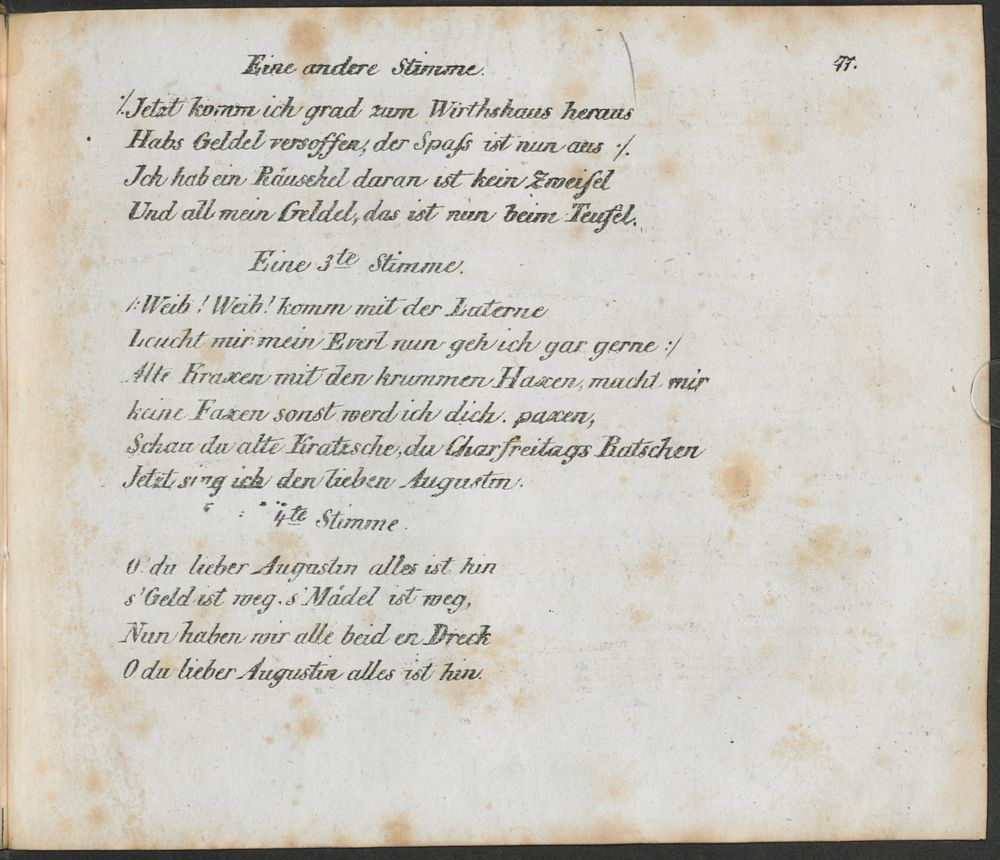 Eine andere Stimme. 47.
:/: Jetzt komm ich grad zum Wirthshaus heraus
Habs Geldel versoffen, der Spaſs ist nun aus :/.
Jch hab ein Räuschel daran ist kein Zweifel
Und all mein Geldel, das ist nun beim Teufel.
Eine 3te Stimme.
/: Weib! Weib! komm mit der Laterne
Leucht mir mein Everl nun geh ich gar gerne :/
Alte Kraxen mit den krummen Haxen, macht mir
keine Faxen sonst werd ich dich paxen,
Schau du alte Kratzsche, du Charfreitags Ratschen
Jetzt sing ich den lieben Augustin.
4te Stimme.
O du lieber Augustin alles ist hin
s'Geld ist weg. s'Mädel ist weg,
Nun haben wir alle beid en Dreck
O du lieber Augustin alles ist hin.